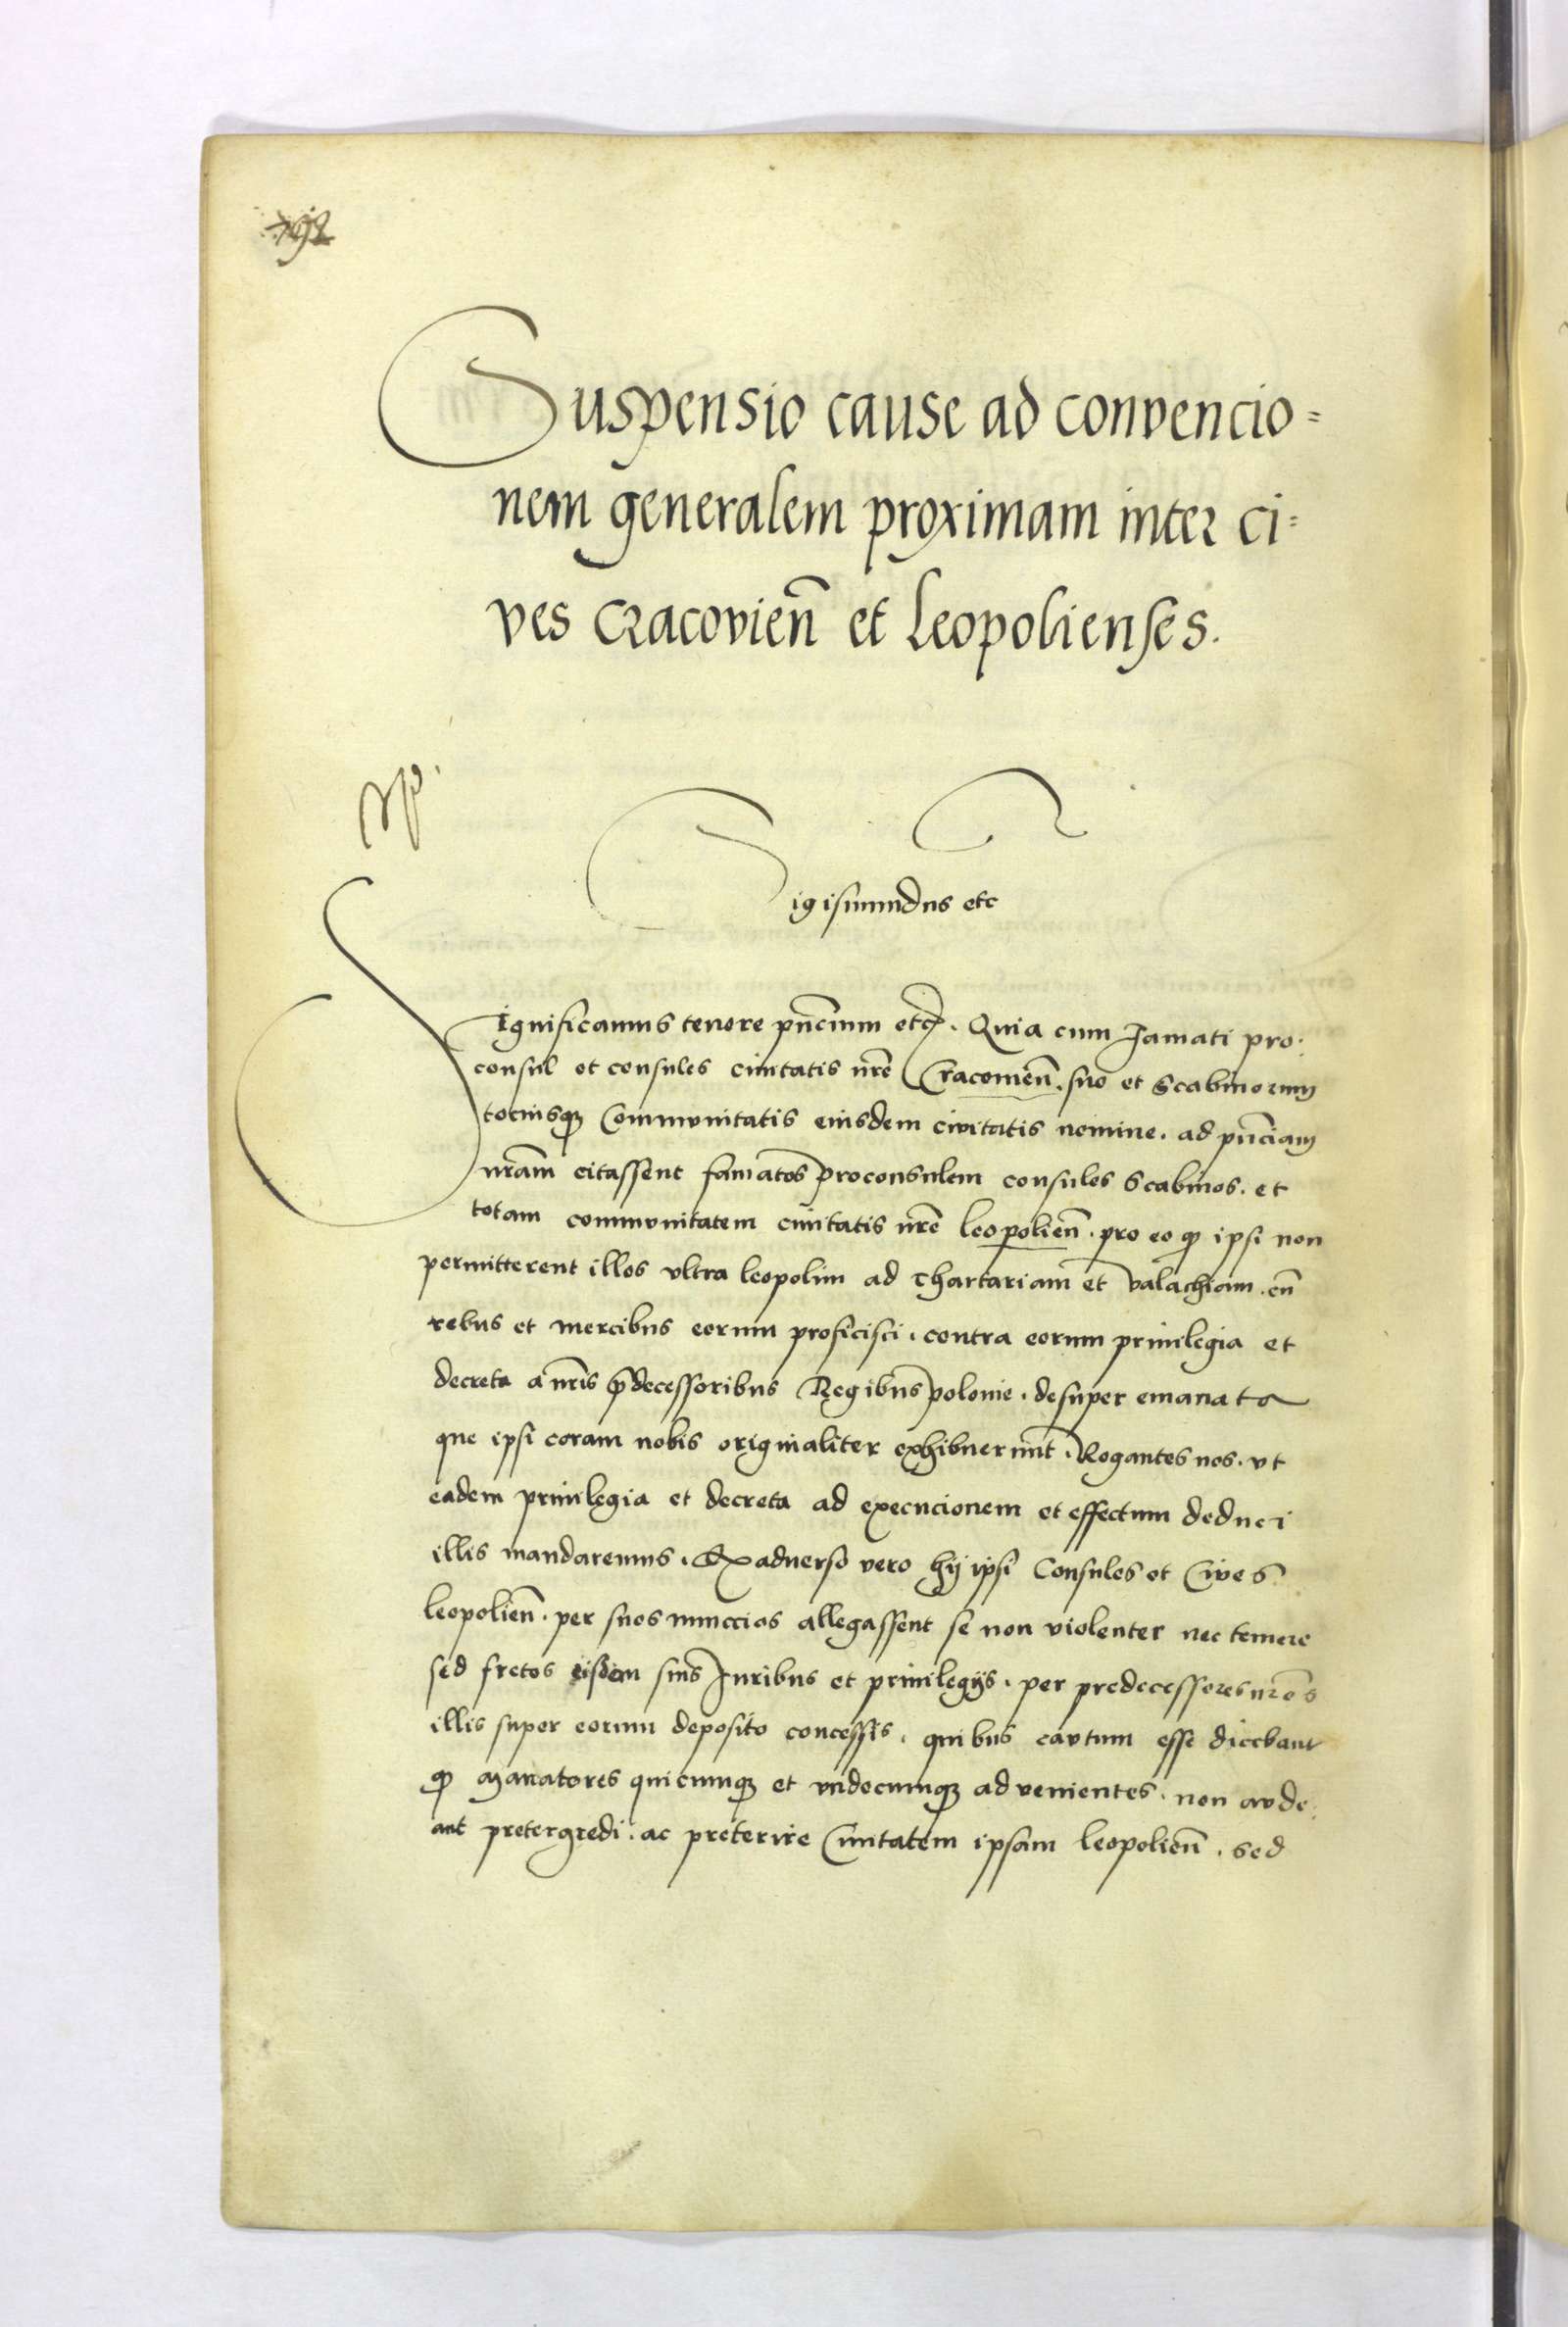 Suspensio cause ad convencio=
nem generalem proximam inter ci=
ves Cracovieñ et Leopolienses.
Sigismundus etc
Significamus tenore pñcium etc. Quia cum famati pro:
consul et consules civitatis nrẽ Cracovieñ. suo et Scabinorum
tociusq̃ Communitatis eiusdem civitatis nomine. ad pñciam
nrãm citassent famatos proconsulem consules Scabinos. et
totam communitatem civitatis nrẽ leopolieñ. pro eo q̃ ipsi non
permitterent illos ultra leopolim ad Thartariam et Valachiam. cũ
rebus et mercibus eorum proficisci. contra eorum privilegia et
decreta a nrĩs p̃decessoribus Regibus polonie. desuper emanata
que ipsi coram nobis originaliter exhibuerunt. Rogantes nos. ut
eadem privilegia et decreta ad execucionem et effectum deduci
illis mandaremus. Ex adverso vero hij ipsi Consules et Cives
leopolieñ. per suos nunccios allegassent se non violenter nec temere
sed fretos eisdem suis Iuribus et privilegijs. per predecessores nrõs
illis super eorum deposito concessis. quibus cavtum esse dicebant
q̃ mercatores quicumq̃ et undecumq̃ advenientes. non avde:
ant pretergredi. ac preterire Civitatem ipsam leopolieñ. sed